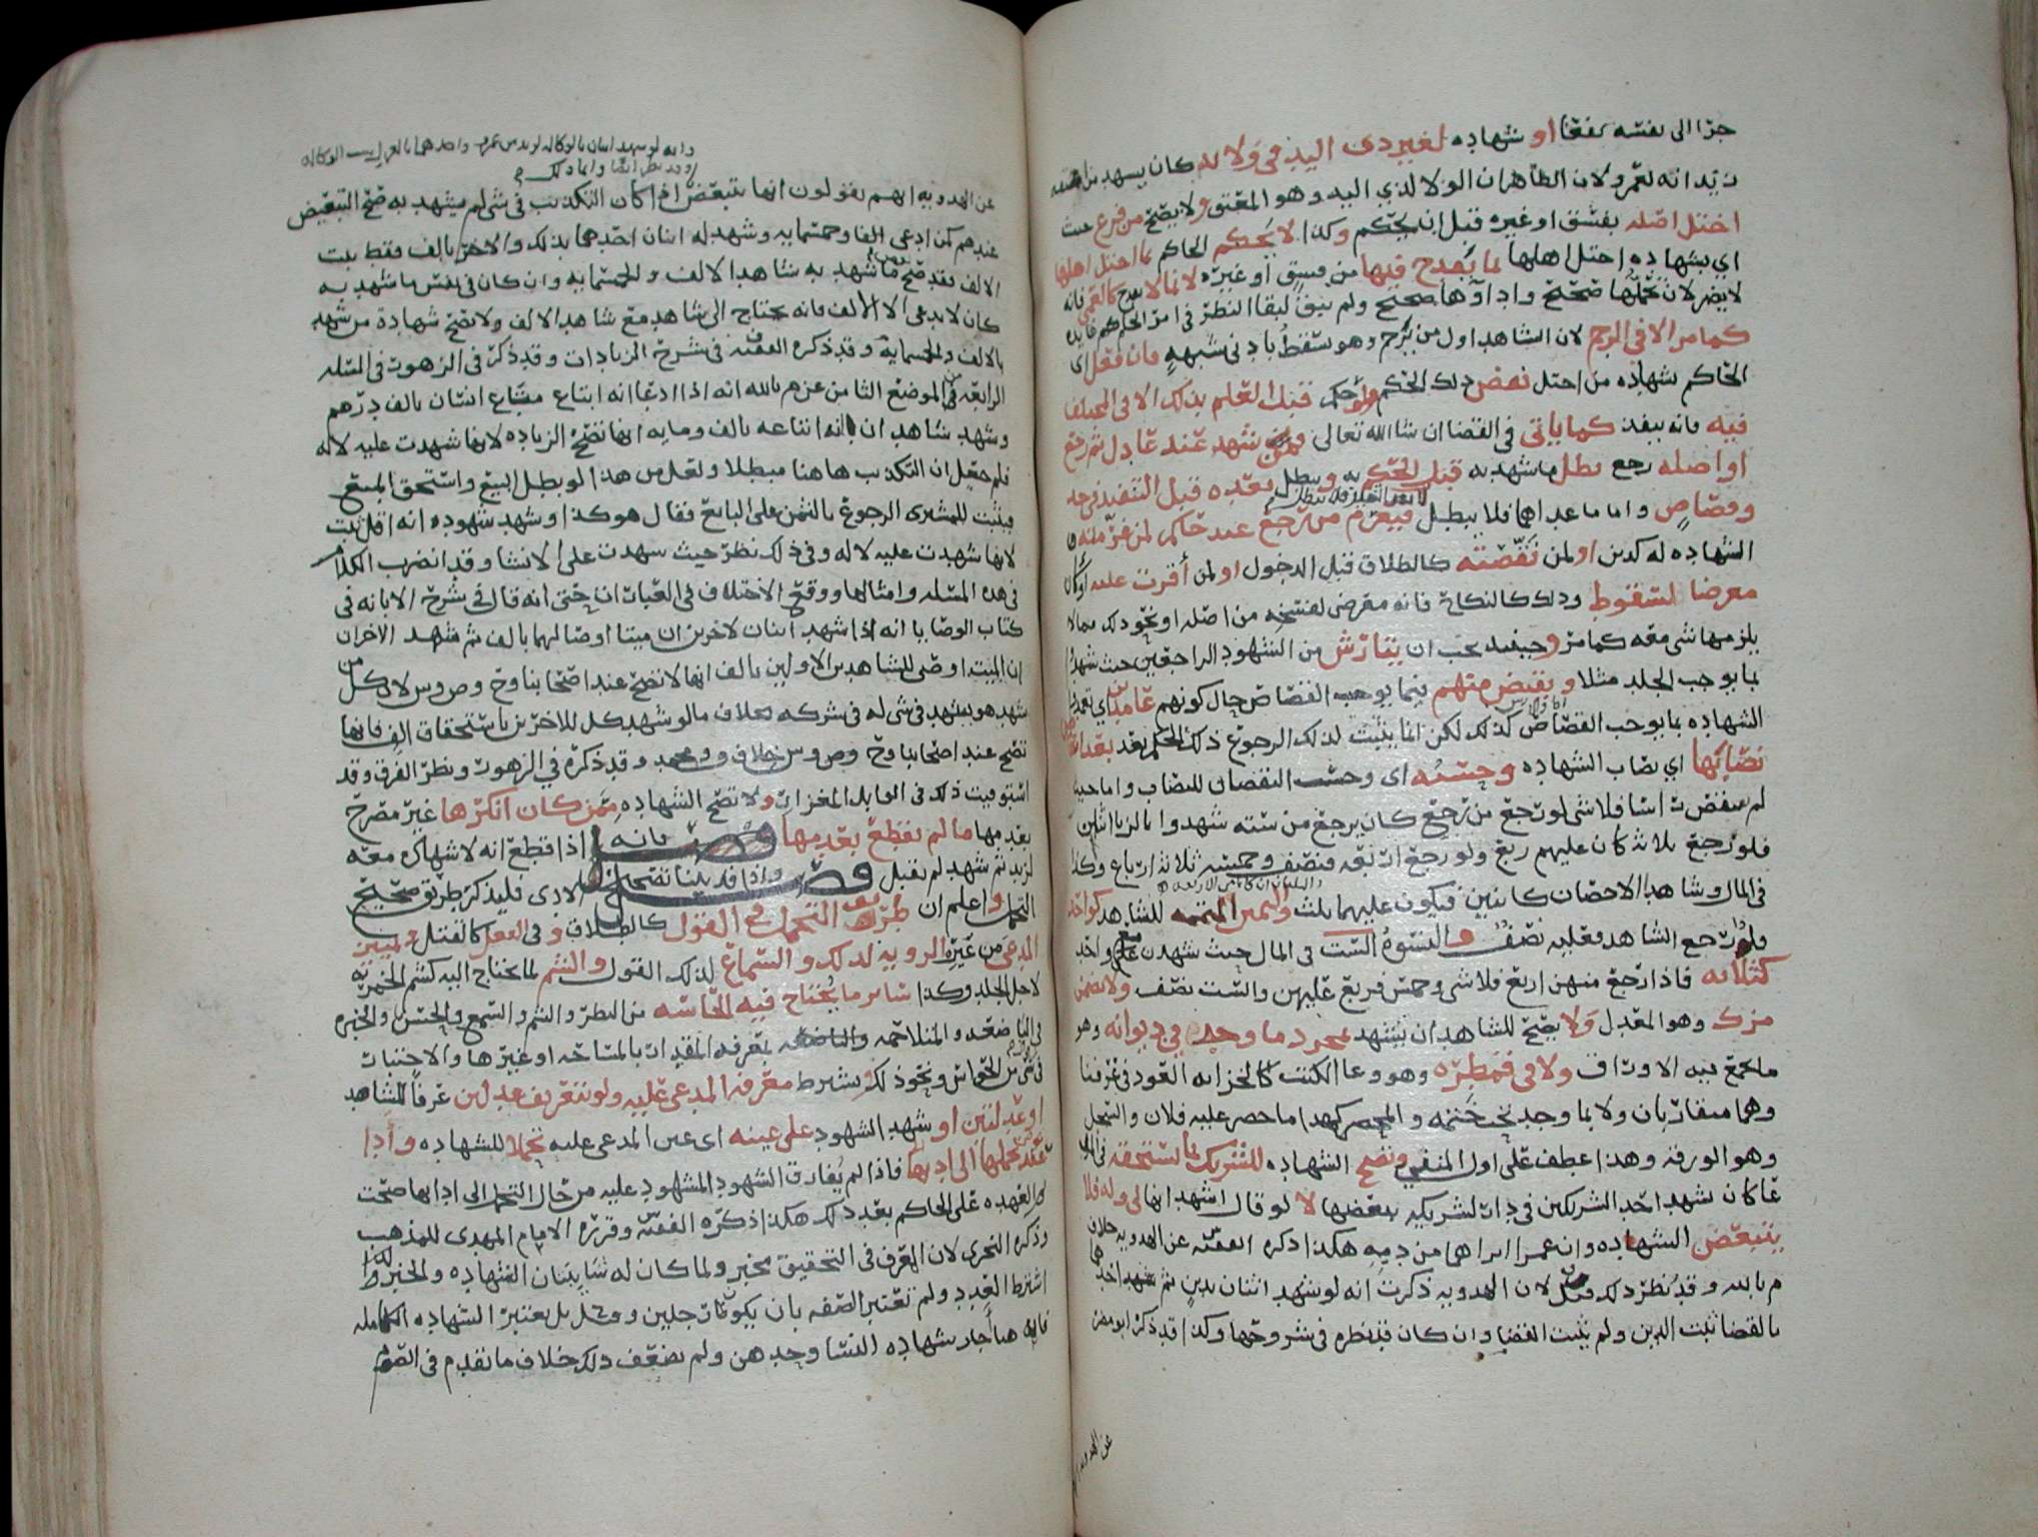 جرا الى نفسه نفعا او شهاده لغير ذى اليد في ولا لو كان يشهد
زيد انه لعمرو لان الظاهر ان الولا لذي اليد وهو المعتق ولا يصح من فرع حيث
اختل اصله بفسق او غيره قبل ان يحكم وكذا لا يحكم الحاكم بما اختل اهلها
اي بشهاده اختل اهلها بما يقدح فيها من فسق او غيره لا بما لا يقدح كالعمى فانه
لا يضر لان تحملها صحيح واداؤها صحيح ولم يبق لبقا النظر في امر الحاكم فايده
كما مر الا في الرجم لان الشاهد اول من يرجم وهو يسقط بادنى شبهه فان فعل اى
الحاكم شهاده من اختل نقض ذلك الحكم ولو حكم قبل العلم بذلك الا في المختلف
فيه فانه ينفذ كما ياتى في القضا ان شا الله تعالى ومن شهد عند عادل ثم رجع
او اصله رجع بطل ما شهد به قبل الحكم به ويبطل بعده قبل التنفيذ في حد
وقصاص واما ما عداهما فلا يبطل فيغرم من رجع عند حاكم لمن غرمته
الشهاده له كدين او لمن نقصته كالطلاق قبل الدخول او لمن أقرت عليه او كان
معرضا لسقوط وذلك كالنكاح فانه معرض لفسخه من اصله او نحو ذلك مما لا
يلزمها شي معه كما مر وحينئذ يجب ان يتارش من الشهود الراجعين حيث شهدوا
بما يوجب الجلد مثلا ويقتص منهم فيما يوجب القصاص حال كونهم عامدين اي تعمدوا
الشهاده بما يوجب القصاص كذلك لكن انما يثبت لذلك الرجوع ذلك الحكم بعد بعد انتقاص
نصابها اي نصاب الشهاده وحسبه اى وحسب النقصان للنصاب واما حيث
لم ينقض شيا فلا شى لو رجع من رجع كان يرجع من سته شهدوا بالزنا اثنان
فلو رجع ثلاثه كان عليهم ربع ولو رجع اربعه فنصف وخمسه ثلاثة ارباع وكذا
في المال وشاهدا الاحصان كاثنين فيكون عليهما ثلث واليمين المتممه للشاهد كواحد
فلو رجع الشاهد فعليه نصف والنسوة الست فى المال حيث شهدن مع واحد
كثلاثه فاذا رجع منهن اربع فلا شى وخمس فربع عليهن والست نصف ولا يضمن
مزك وهو المعدل ولا يصح للشاهد ان يشهد بمجرد ما وجد في ديوانه وهو
ما يجمع فيه الاوراق ولا في قمطره وهو وعا الكتب كالخزانه العود في عرفنا
وهما متقاربان ولا بما وجد تحت ختمه والمحضر كهذا ما حضر عليه فلان والسجل
وهو الورقه وهذا عطف على اول المنفي وتصح الشهاده للشريك بما يستحقه في المال
عا كان شهد احد الشريكين في دار لشريكه ببعضها لا لو قال اشهد انها لي وله فلا
يتبعض الشهاده وانه عمرا ابراهما من دمه هكذا ذكره الفقيه عن الهدويه خلاف
م بالله وقد نظر ذلك قيل لان الهدويه ذكرت انه لو شهد اثنان بدين ثم شهد احدهما
بالقضا ثبت الدين ولم يثبت القضا وان كان قد نظره في شرحها وكذا قد ذكر ابو مضر
عن الهدويه
وانه لو شهد اثنان بالوكاله لزيد من عمرو واحدهما بالعزل ثبت الوكاله
وقد نظر ايضا وانما ذلك
عن الهدويه انهم يقولون انها تتبعض اذا كان التكذيب في شى لم يشهد به صح التبعيض
عندهم كمن ادعى الفا وخمسمايه وشهد له اثنان احدهما بذلك والاخر بالف فقط ثبت
الالف فقد صح ما شهد به شاهد الالف والخمسمايه وان كان في بعض ما شهد به
كان لا يدعى الا الالف فانه يحتاج الى شاهد مع شاهد الالف ولا تصح شهادة من شهد
بالالف والخمسمايه وقد ذكره الفقيه ف في شرح الزيادات وقد ذكر في الزهور في المسله
الرابعه من الموضع الثامن عن م بالله انه اذا ادعا انه ابتاع متاع انسان بالف درهم
وشهد شاهدان انه ابتاعه بالف ومايه انها تصح الزياده لانها شهدت عليه لا له
فلم جعل ان التكذيب هاهنا مبطلا ولعل من هذا لو بطل البيع واستحق المبيع
فيثبت للمشترى الرجوع بالثمن على البايع فقال هو كذا وشهد شهوده انه اقل ثبت
لانها شهدت عليه لا له وفي ذلك نظر حيث شهدت على الانشا وقد اضطرب الكلام
في هذه المسله وامثالها ووقع الاختلاف في العبارات حتى انه قال في شرح الابانه في
كتاب الوصايا انه اذا شهد اثنان لاخرين ان ميتا اوصا لهما بالف ثم شهد الاخران
ان الميت اوصى للشاهدين الاولين بالف انها لا تصح عند اصحابنا وح وص وس لان كل من
شهد هو يشهد في شى له في شركه بخلاف ما لو شهد كل للاخرين باستحقاق الف فانها
تصح عند اصحابنا وح وص وس خلاف ومحمد وقد ذكره في الزهور ونظر الفرق وقد
استوفيت ذلك في الوابل المغزار ولا تصح الشهاده ممن كان انكرها غير مصرح
بعدمها ما لم يقطع بعدمها فانه اذا قطع انه لا شهاده معه
لزيد ثم شهد لم تقبل فصل واذا قد بينا الادى فليذكر طريق صحيح
التحمل واعلم ان طريق التحمل في القول كالطلاق و في الفعل كالقتل لتمييز
المدعى من غيره الرويه لذلك والسماع لذلك القول والشم لما يحتاج اليه كشم الخمريه
لاجل الجلد وكذا ساير ما يحتاج فيه الحاسه من النظر والشم والسمع والحس والخبره
في الباضعه والمتلاحمه لمعرفه المقدار بالمساحه او غيرها والاختبار
في شى من الحواس ونحو ذلك ويشترط معرفه المدعى عليه ولو بتعريف عدلين عرفا للشاهد
او عدلتين او شهد الشهود على عينه اى عين المدعى عليه تحملا للشهاده وأدا
عند تحملها الى ادايها فاذا لم يفارق الشهود المشهود عليه من حال التحمل الى ادايها صحت
كالعهده على الحاكم بعد ذلك هكذا ذكره الفقيه س وقرره الامام المهدى للمذهب
وذكره النجرى لان المعرف في التحقيق مخبر ولما كان له شايبتان الشهاده والخبر لذا
اشترط العدد ولم تعتبر الصفه بان يكونا رجلين و بل يعتبر الشهاده الكامله
فانه هنا أجاز شهاده النسا وحدهن ولم يضعف ذلك خلاف ما تقدم في الصوم